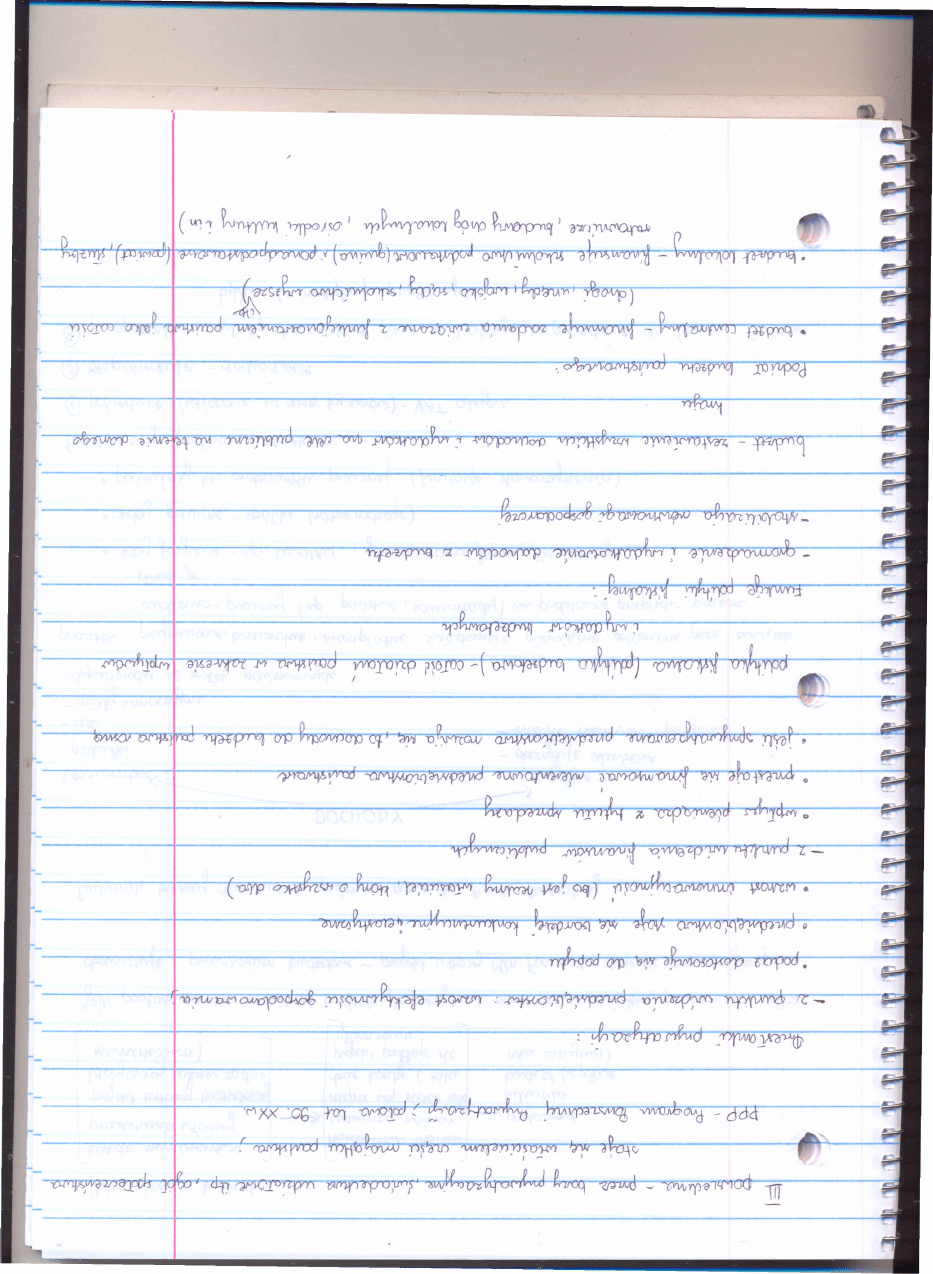 III powszechna - przez bazy prywatyzacyjne, świadectwa udziałowe itp, ogół społeczeństwa
staje się właścicielem części majątku państwa;
PPP - Program Powszechnej Prywatyzacji; połowa lat 90. XXw.
Przesłanki prywatyzacji:
- z punktu widzenia przedsiębiorstw: wzrost efektywności gospodarowania;
• podaż dostosowuje się do popytu
• przedsiębiorstwo staje się bardziej konkurencyjne i elastyczne
• wzrost innowacyjności (bo jest realny właściciel, który o wszystko dba)
- z punktu widzenia finansów publicznych
• wpływ pieniądza z tytułu sprzedaży
• przestaje się finansować nierentowne przedsiębiorstwa państwowe
• jeśli sprywatyzowane przedsiębiorstwo rozwija się, to dochody do budżetu państwa rosną
polityka fiskalna (polityka budżetowa) - całość działań państwa w zakresie wpływów
i wydatków budżetowych
Funkcje polityki fiskalnej:
- gromadzenie i wydatkowanie dochodów z budżetu
- stabilizacja równowagi gospodarczej
budżet - zestawienie wszystkich dochodów i wydatków na cele publiczne na terenie danego
kraju
Podział budżetu państwowego:
• budżet centralny - finansuje zadania związane z funkcjonowaniem państwa jako całości
(drogi, urzędy, wojsko, sądy, szkolnictwo wyższe)
• budżet lokalny - finansuje szkolnictwo podstawowe (gmina) i ponadpodstawowe (powiat), służby
ratownicze, budowy dróg lokalnych, ośrodki kultury i in)